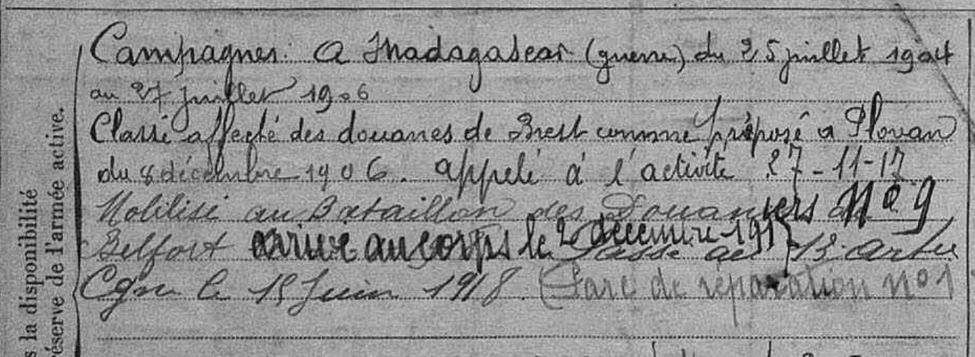 Campagnes. A Madagascar (guerre) du 25 juillet 1904
au 27 juillet 1906
Classé affecté des douanes de Brest comme préposé à Plovan
du 8 décembre 1906. appelé à l'activité 27-11-17
Mobilisé au Bataillon des Douaniers N° 9
Belfort arrivé au corps le 2 décembre 1917 Passé au 13e Artie
le 15 Juin 1918. (Parc de réparation n° 1
s la disponibilité
réserve de l'armée active.